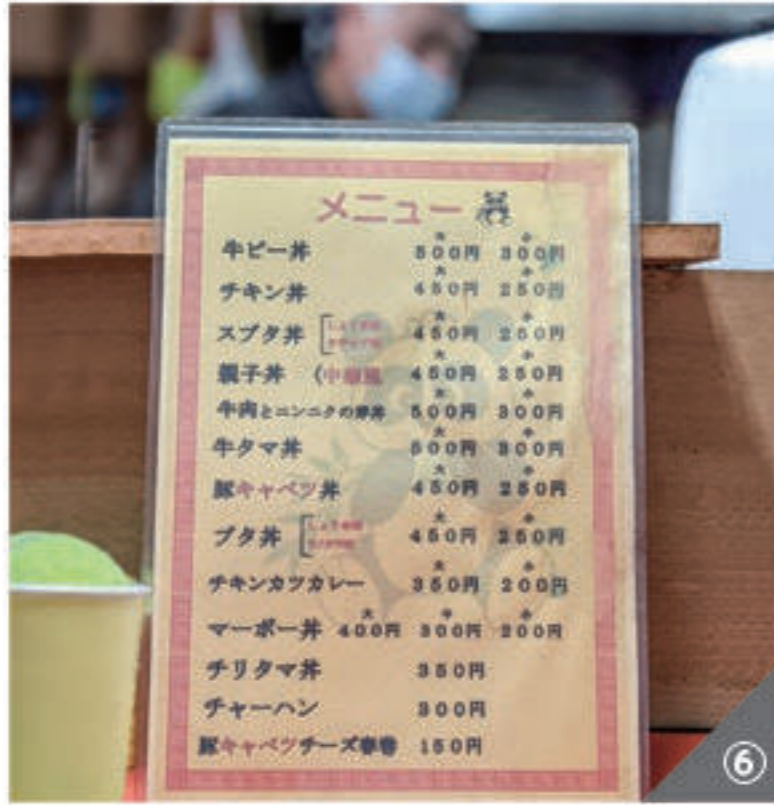 メニュー
牛ピー丼 大 500円 小 300円
チキン丼 大 450円 小 250円
スブタ丼 大 450円 小 250円
親子丼 (中華風 大 450円 小 250円
牛肉とニンニクの芽丼 大 500円 小 300円
牛タマ丼 大 500円 小 300円
豚キャベツ丼 大 450円 小 250円
ブタ丼 大 450円 小 250円
チキンカツカレー 大 350円 小 200円
マーボー丼 大 400円 中 300円 小 200円
チリタマ丼 350円
チャーハン 300円
豚キャベツチーズ春巻 150円
⑥